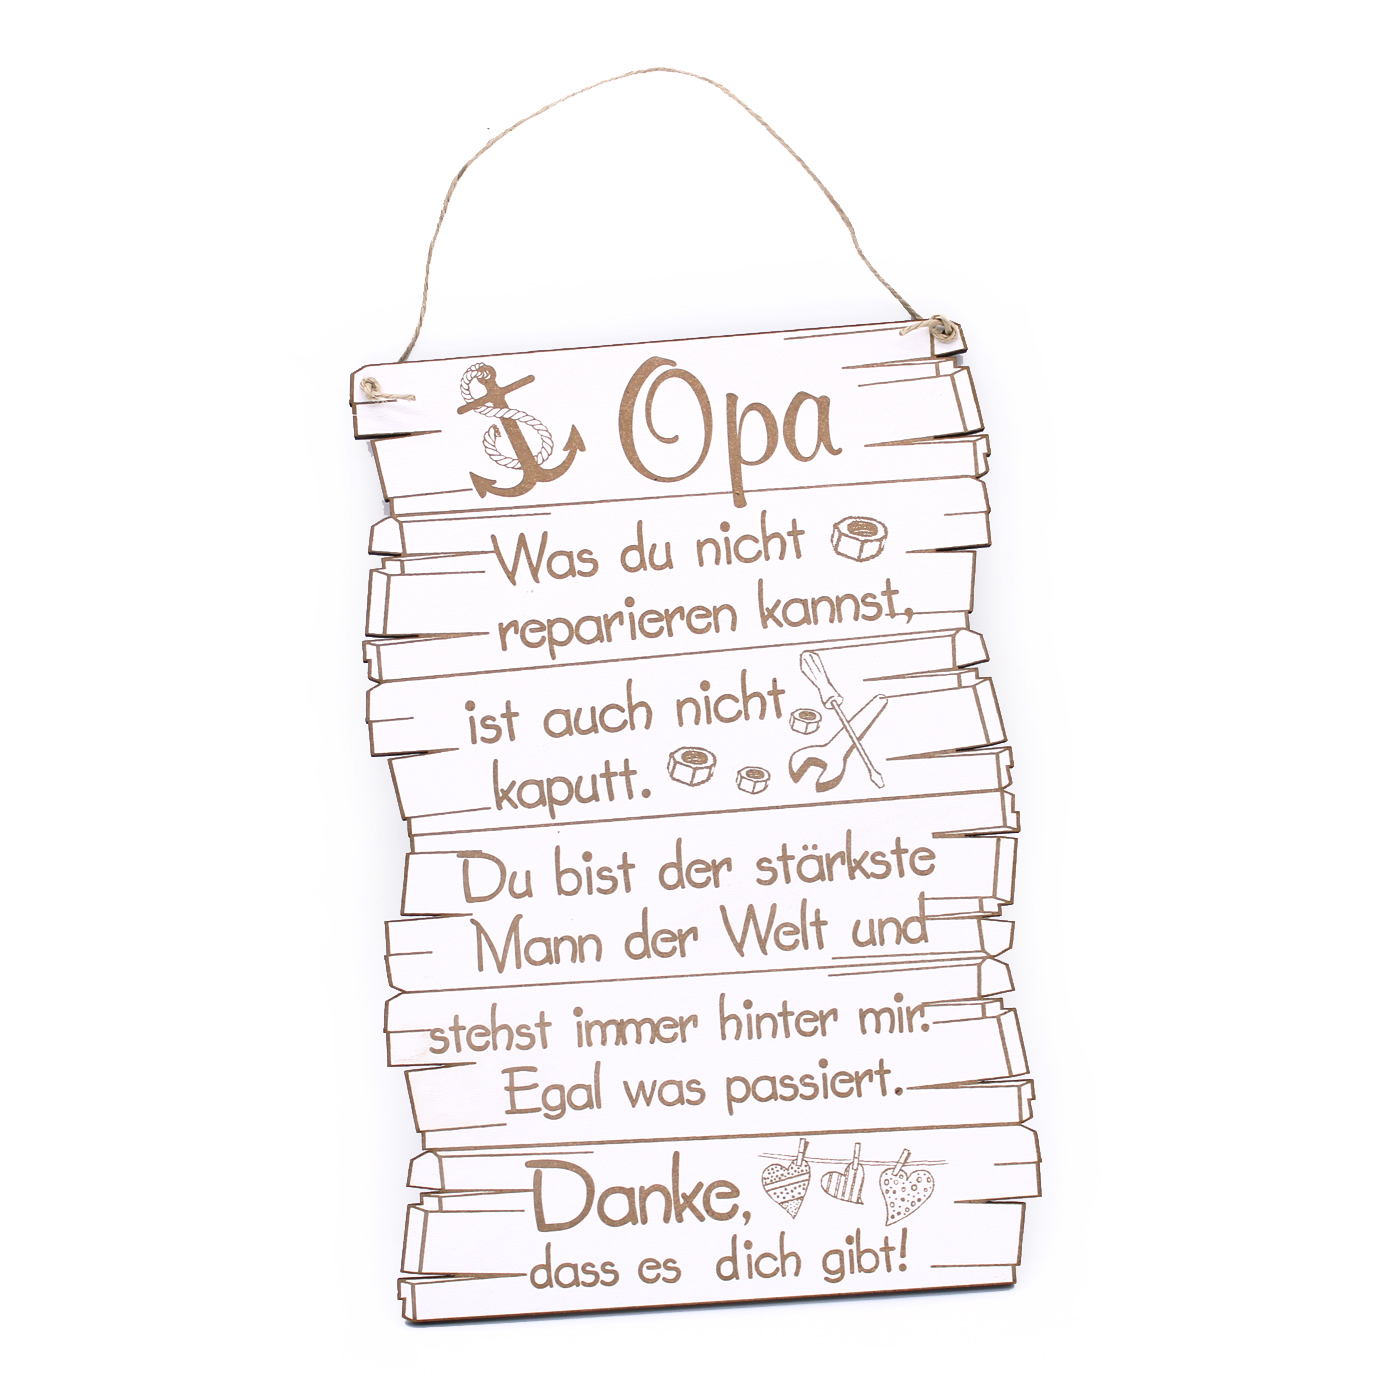 Opa
Was du nicht
reparieren kannst,
ist auch nicht
kaputt.
Du bist der stärkste
Mann der Welt und
stehst immer hinter mir.
Egal was passiert.
Danke,
dass es dich gibt!